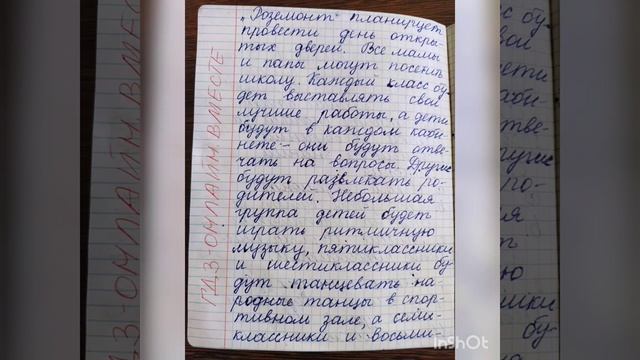 „Роземонт" планирует
провести день откры-
тых дверей. Все мамы
и папы могут посетить
школу. Каждый класс бу-
дет выставлять свои
лучшие работы, а дети
будут в каждом каби-
нете – они будут отве-
чать на вопросы. Другие
будут развлекать ро-
дителей. Небольшая
группа детей будет
играть ритмичную
музыку, пятиклассники
и шестиклассники бу-
дут танцевать на-
родные танцы в спор-
тивном зале, а семи-
классники и восьми-
ГДЗ-ОНЛАЙН ВМЕСТЕ
InShOt